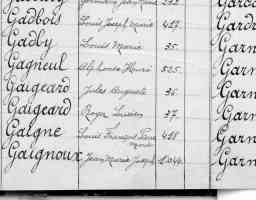 Gadbois Louis Joseph Marie 427. Gard
Gadby Louis Marie 35. Garn
Gagneul Alphonse Henri 525. Garn
Gaigeard Jules Auguste 36. Garn
Gaigeard Roger Lucien 37. Garn
Gaigne Louis François Pierre Marie 428 Garn
Gaignoux Jean Marie Joseph 1.044. Garn